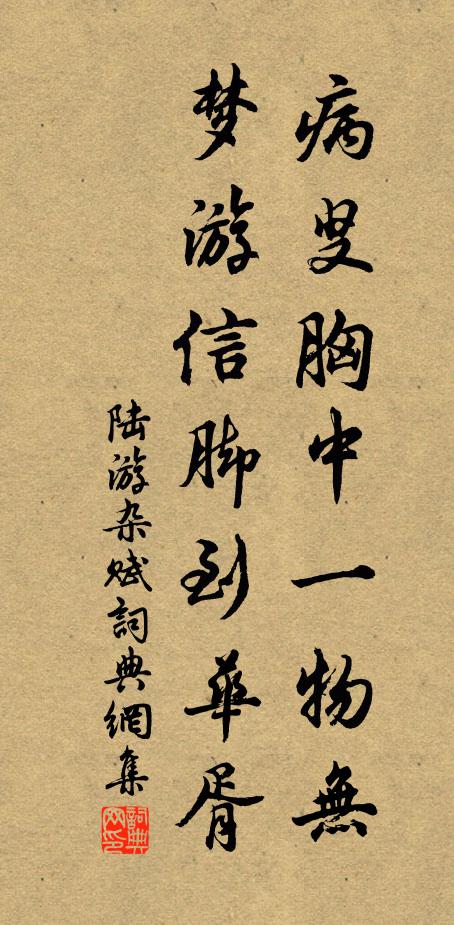 病叟胸中一物無
梦游信脚到華胥
陆游杂赋詞典網集
詞典网印